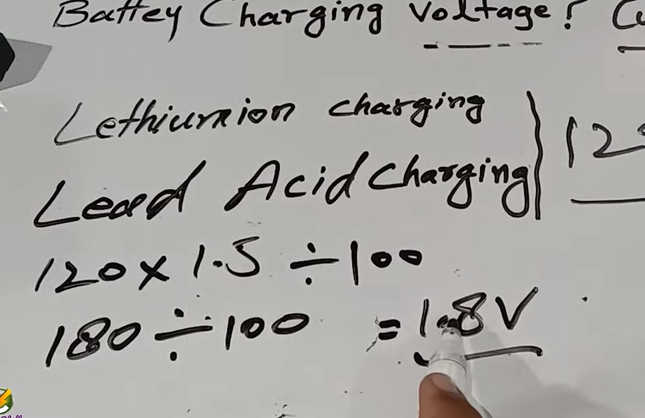 Battey Charging Voltage?
Lethiumion charging
Lead Acid Charging
120 × 1.5 ÷ 100
180 ÷ 100 = 1.8V